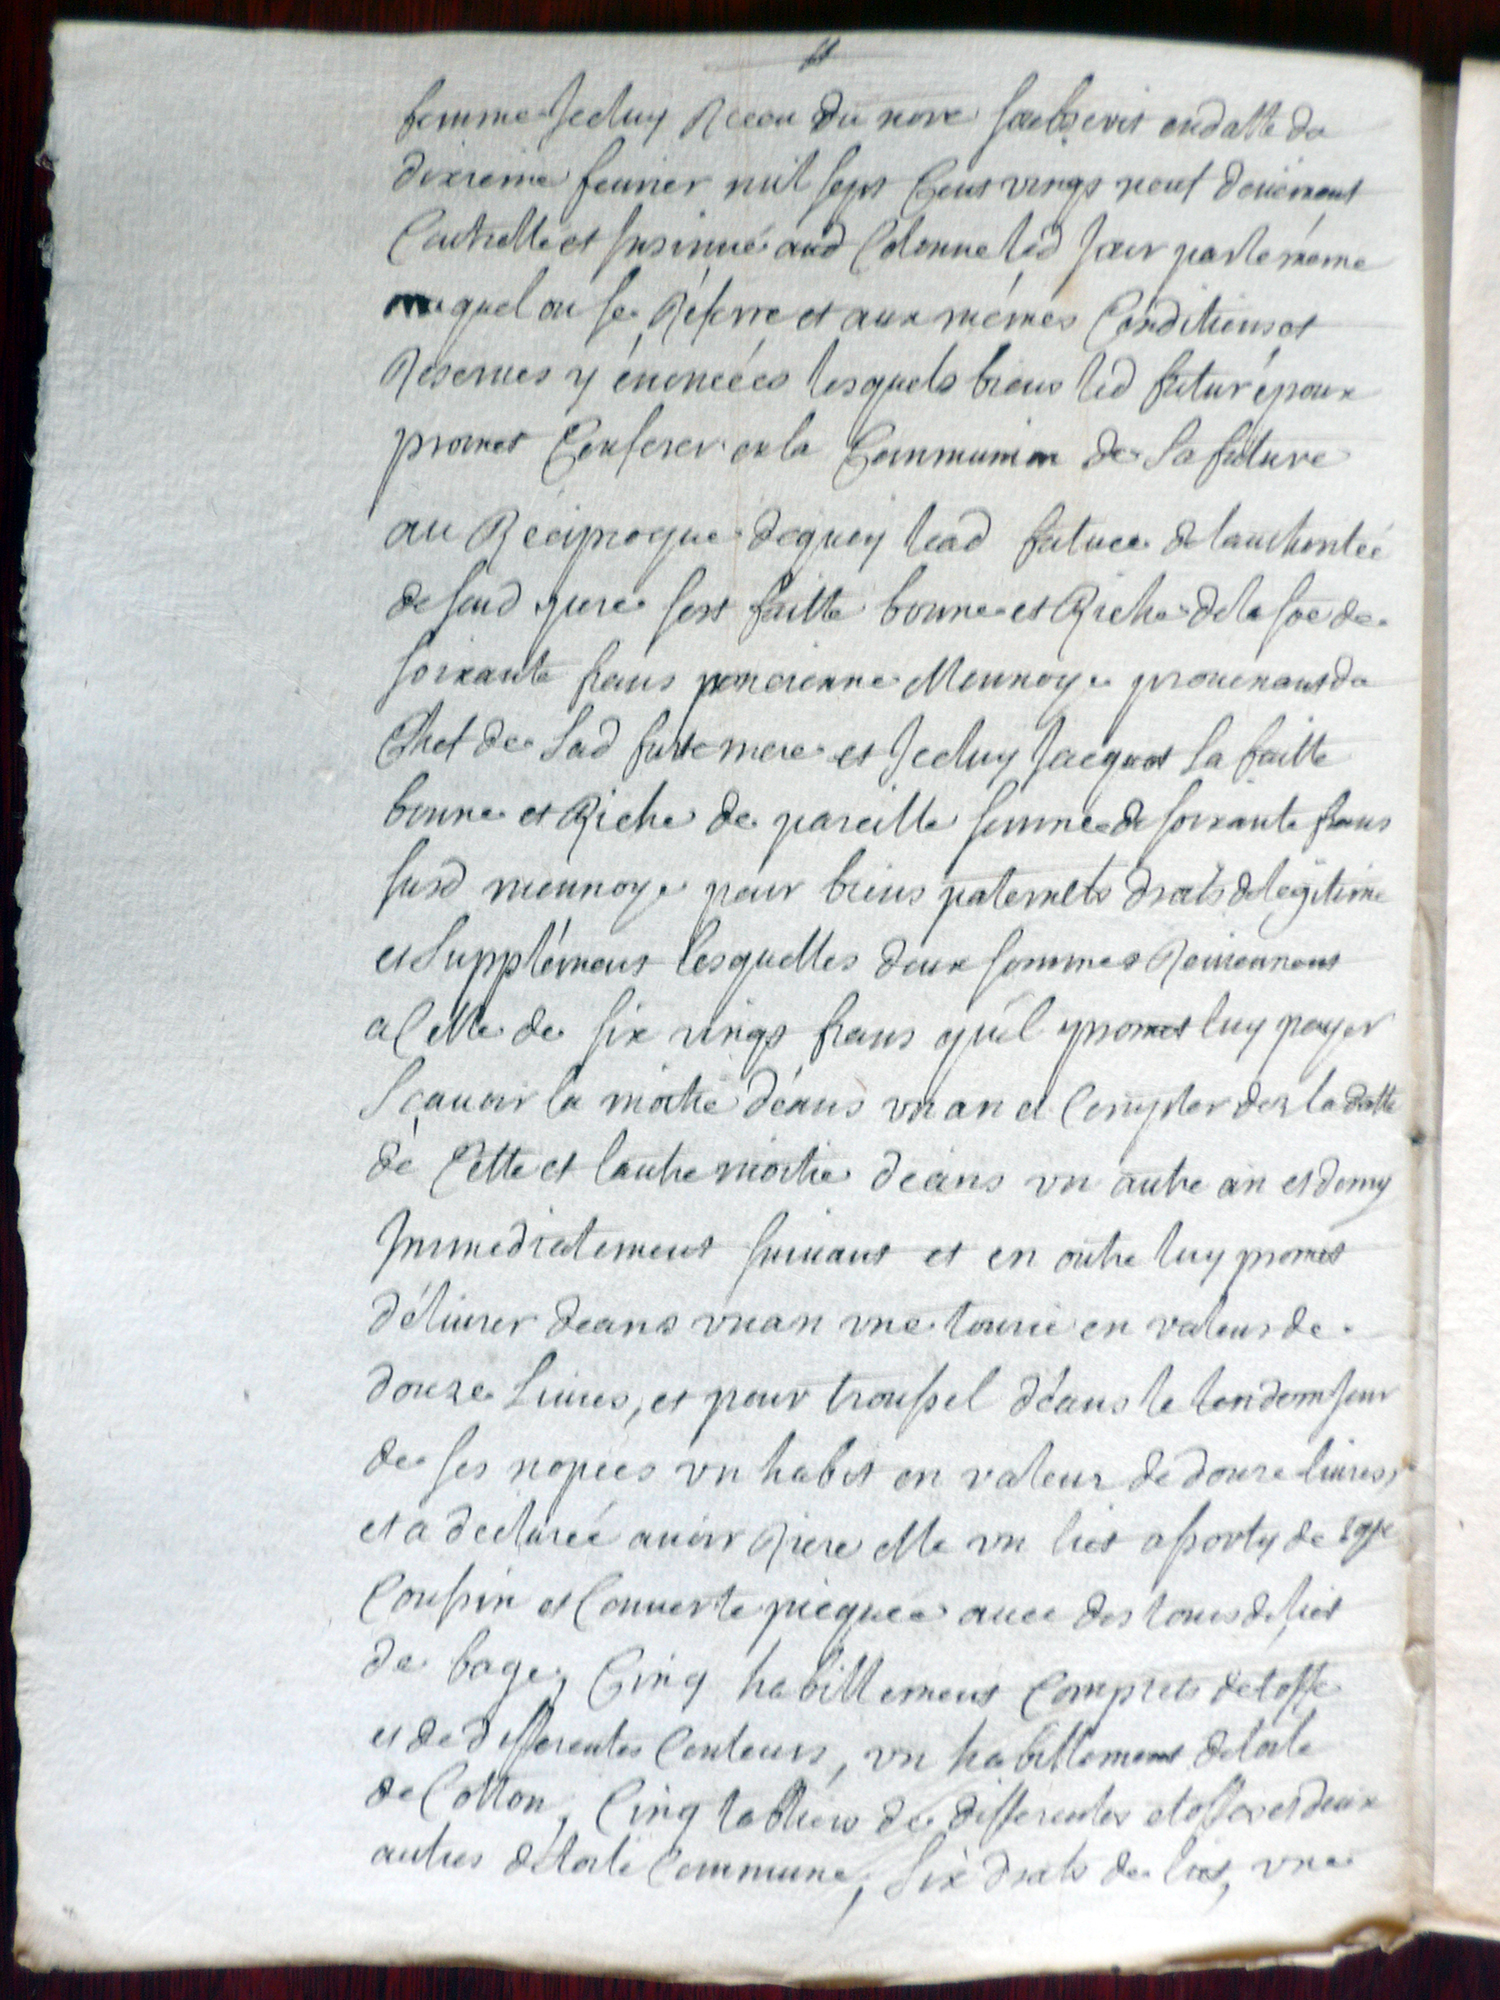 femme Jceluy Receu du nore soubscrit en datte du
dixieme feurier mil sept Cent vingt neuf deüement
Controllé et Jnsinué aud Colonne led Jour par le même
auquel on se Réferre et aux mémes Conditions et
Reserues y énoncées lesquels biens led futur époux
promet Conferer en la Communion de Sa future
au Réciproque de quoy lead future de lauthoritée
de sond pere sest faitte bonne et Riche de la soē de
soixante frans ancienne Monnoye prouenant du
Chef de Sad fute mere et Jceluy Jacquot La faitte
bonne et Riche de pareille somme de soixante frans
susd monnoye pour biens paternels droits de légitime
et Supplément lesquelles deux sommes Reuiennent
a Celle de six vingt frans qu'il promet luy payer
Sçauoir la moitié déans vn an a Compter dez la datte
de Cette et lautre moitié déans vn autre an et demy
Jmmediatement suiuant et en outre luy promet
déliurer déans vn an vne en valeur de
douze Liures, et pour troussel déans le lendem Jour
de ses nopces vn habit en valeur de douze liures,
et a declarée auoir Riere elle vn lict assorty de
Coussin et Couuerte picquée auec des tours de lict
de bage, Cinq habillement Complets détoffe
et de differentes Couleurs, vn habillement de toile
de Cotton, Cinq tabliers de differentes étoffes et deux
autres de toile Commune, six draps de lict, vne